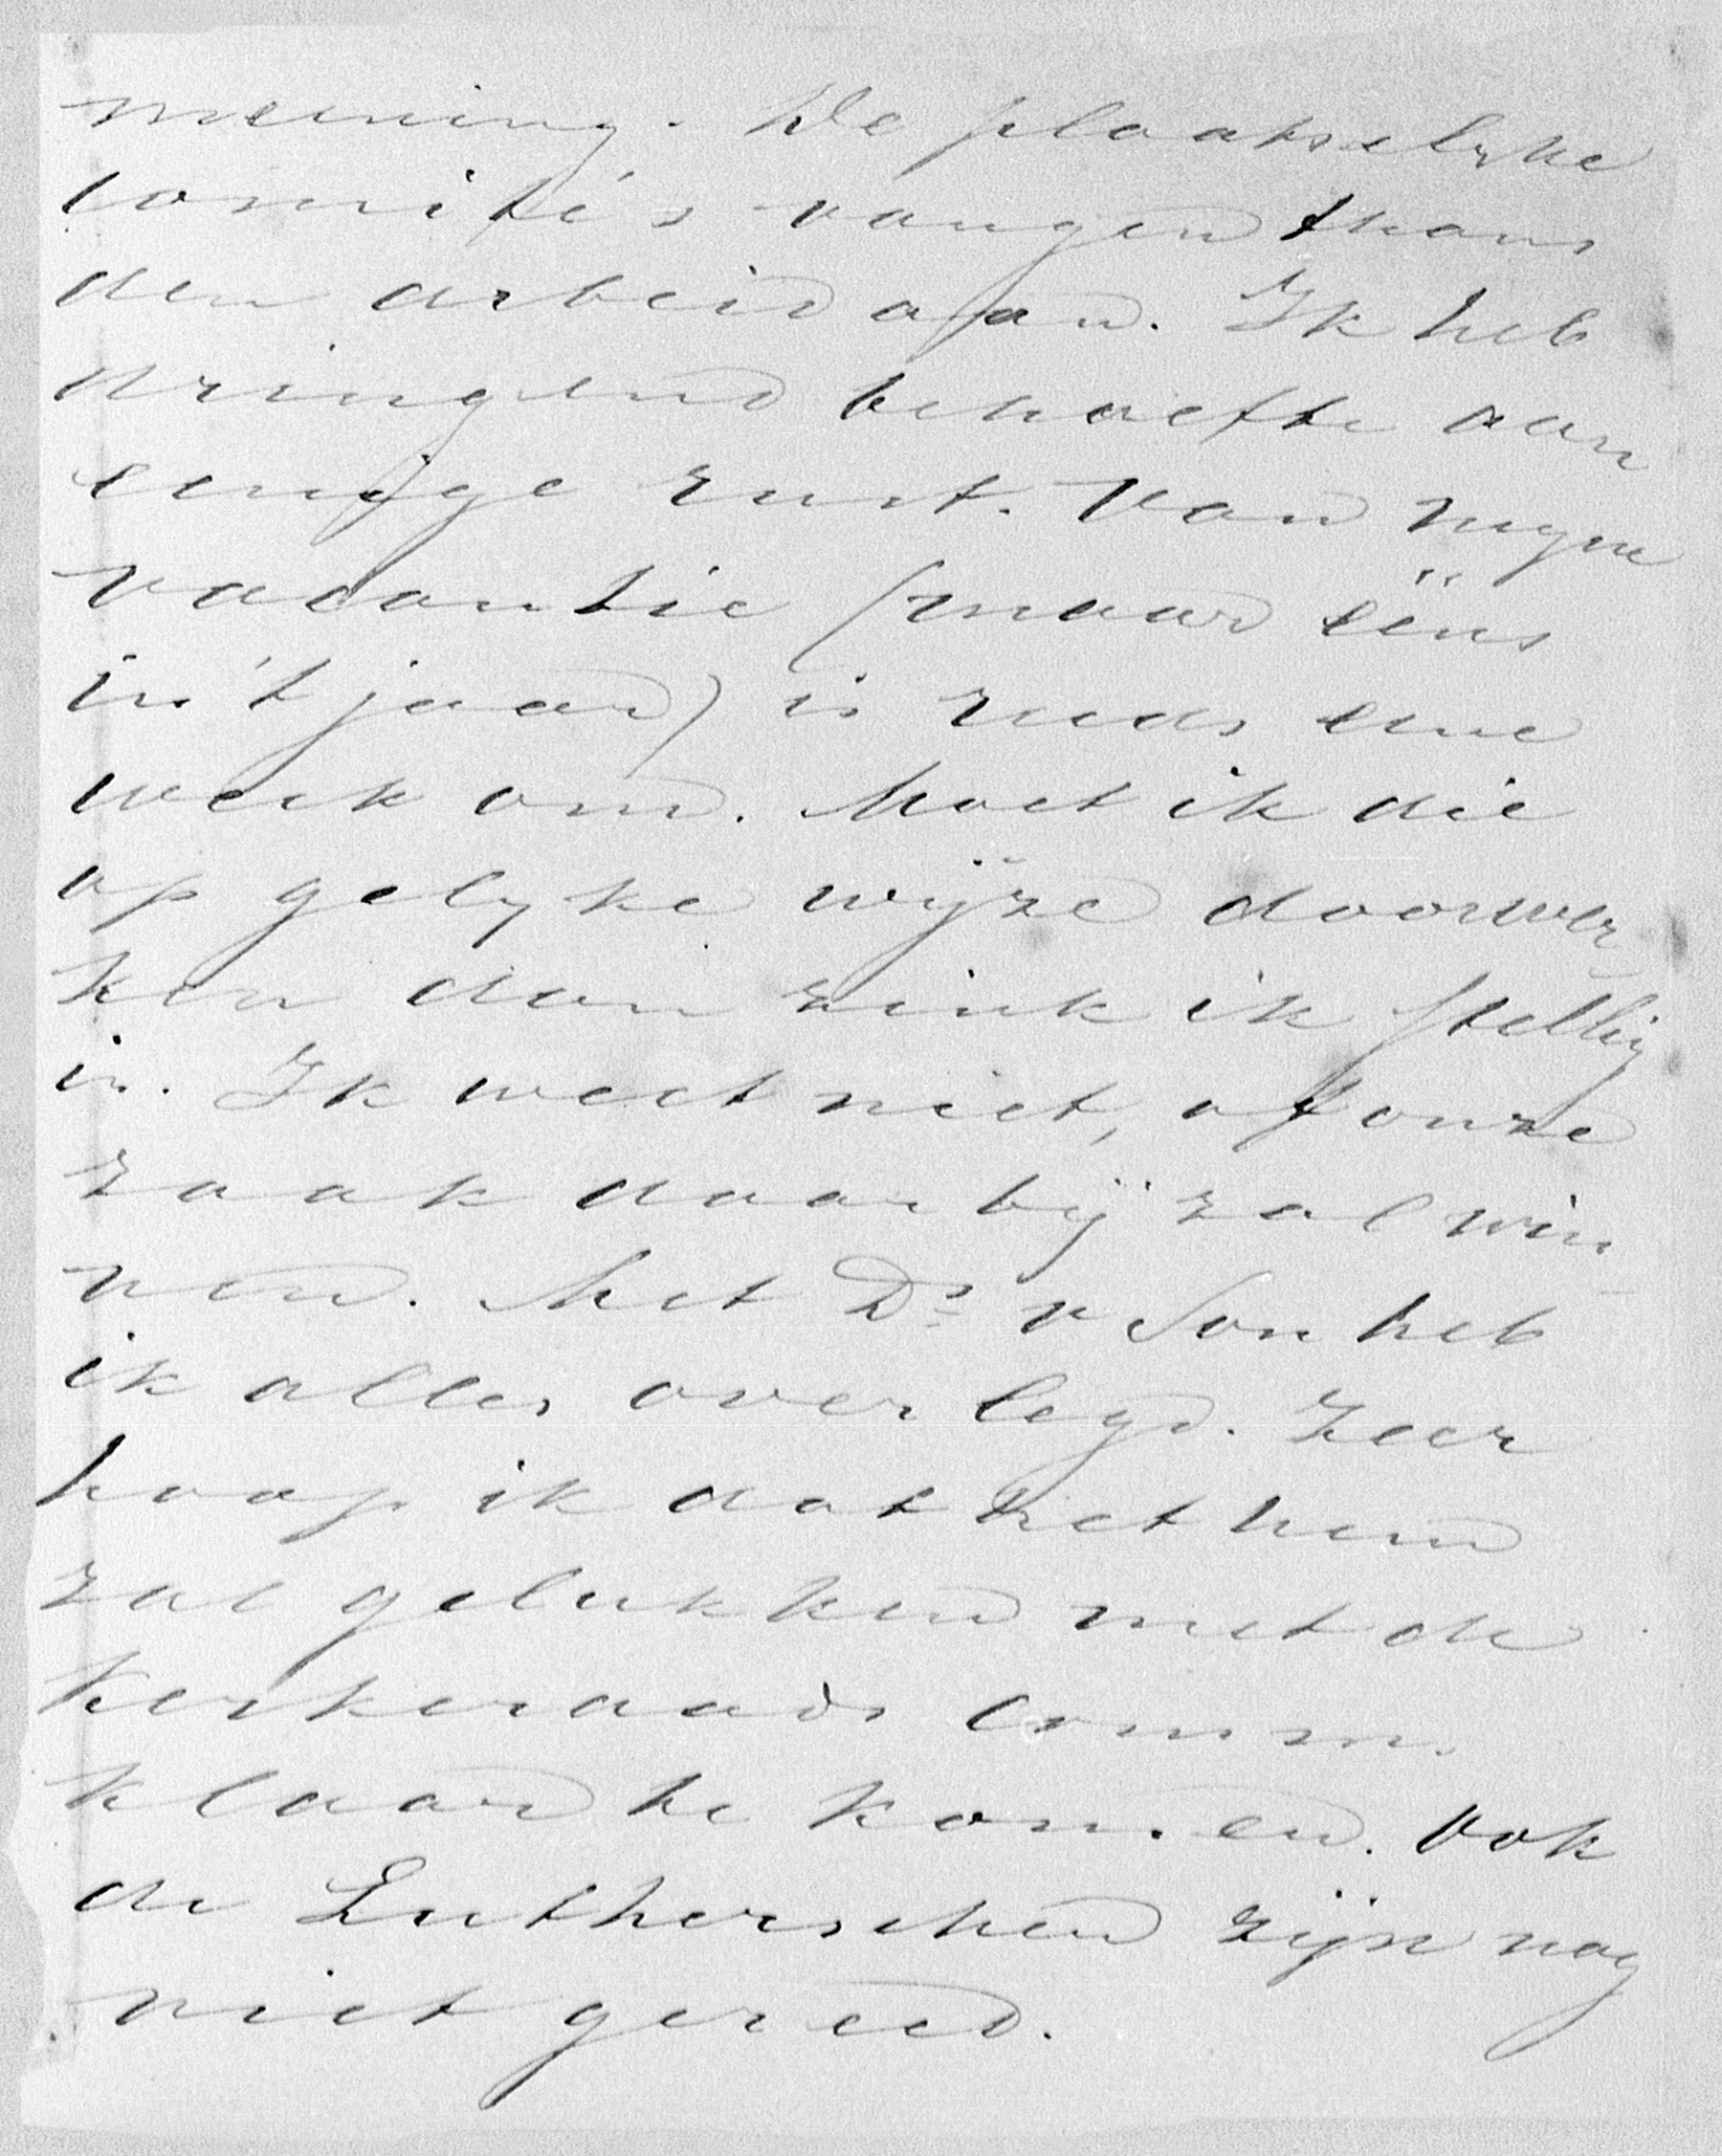 meening. De plaatselyke
comité's vangen thans
den arbeid aan. Ik heb
dringend behoefte aan
eenige rust. Van myne
vacantie (maar ééns
in 't jaar) is reeds eene
week om. Moet ik die
op gelyke wijze doorwer
ken dan zink ik stellig
in. Ik weet niet, of onze
zaak daar bij zal win
nen. Met Ds v Son heb
ik alles overlegd. Zeer
hoop ik dat het hem
zal gelukken met de
kerkeraads comm.
klaar te komen. Ook
de Lutherschen zijn nog
niet gereed.